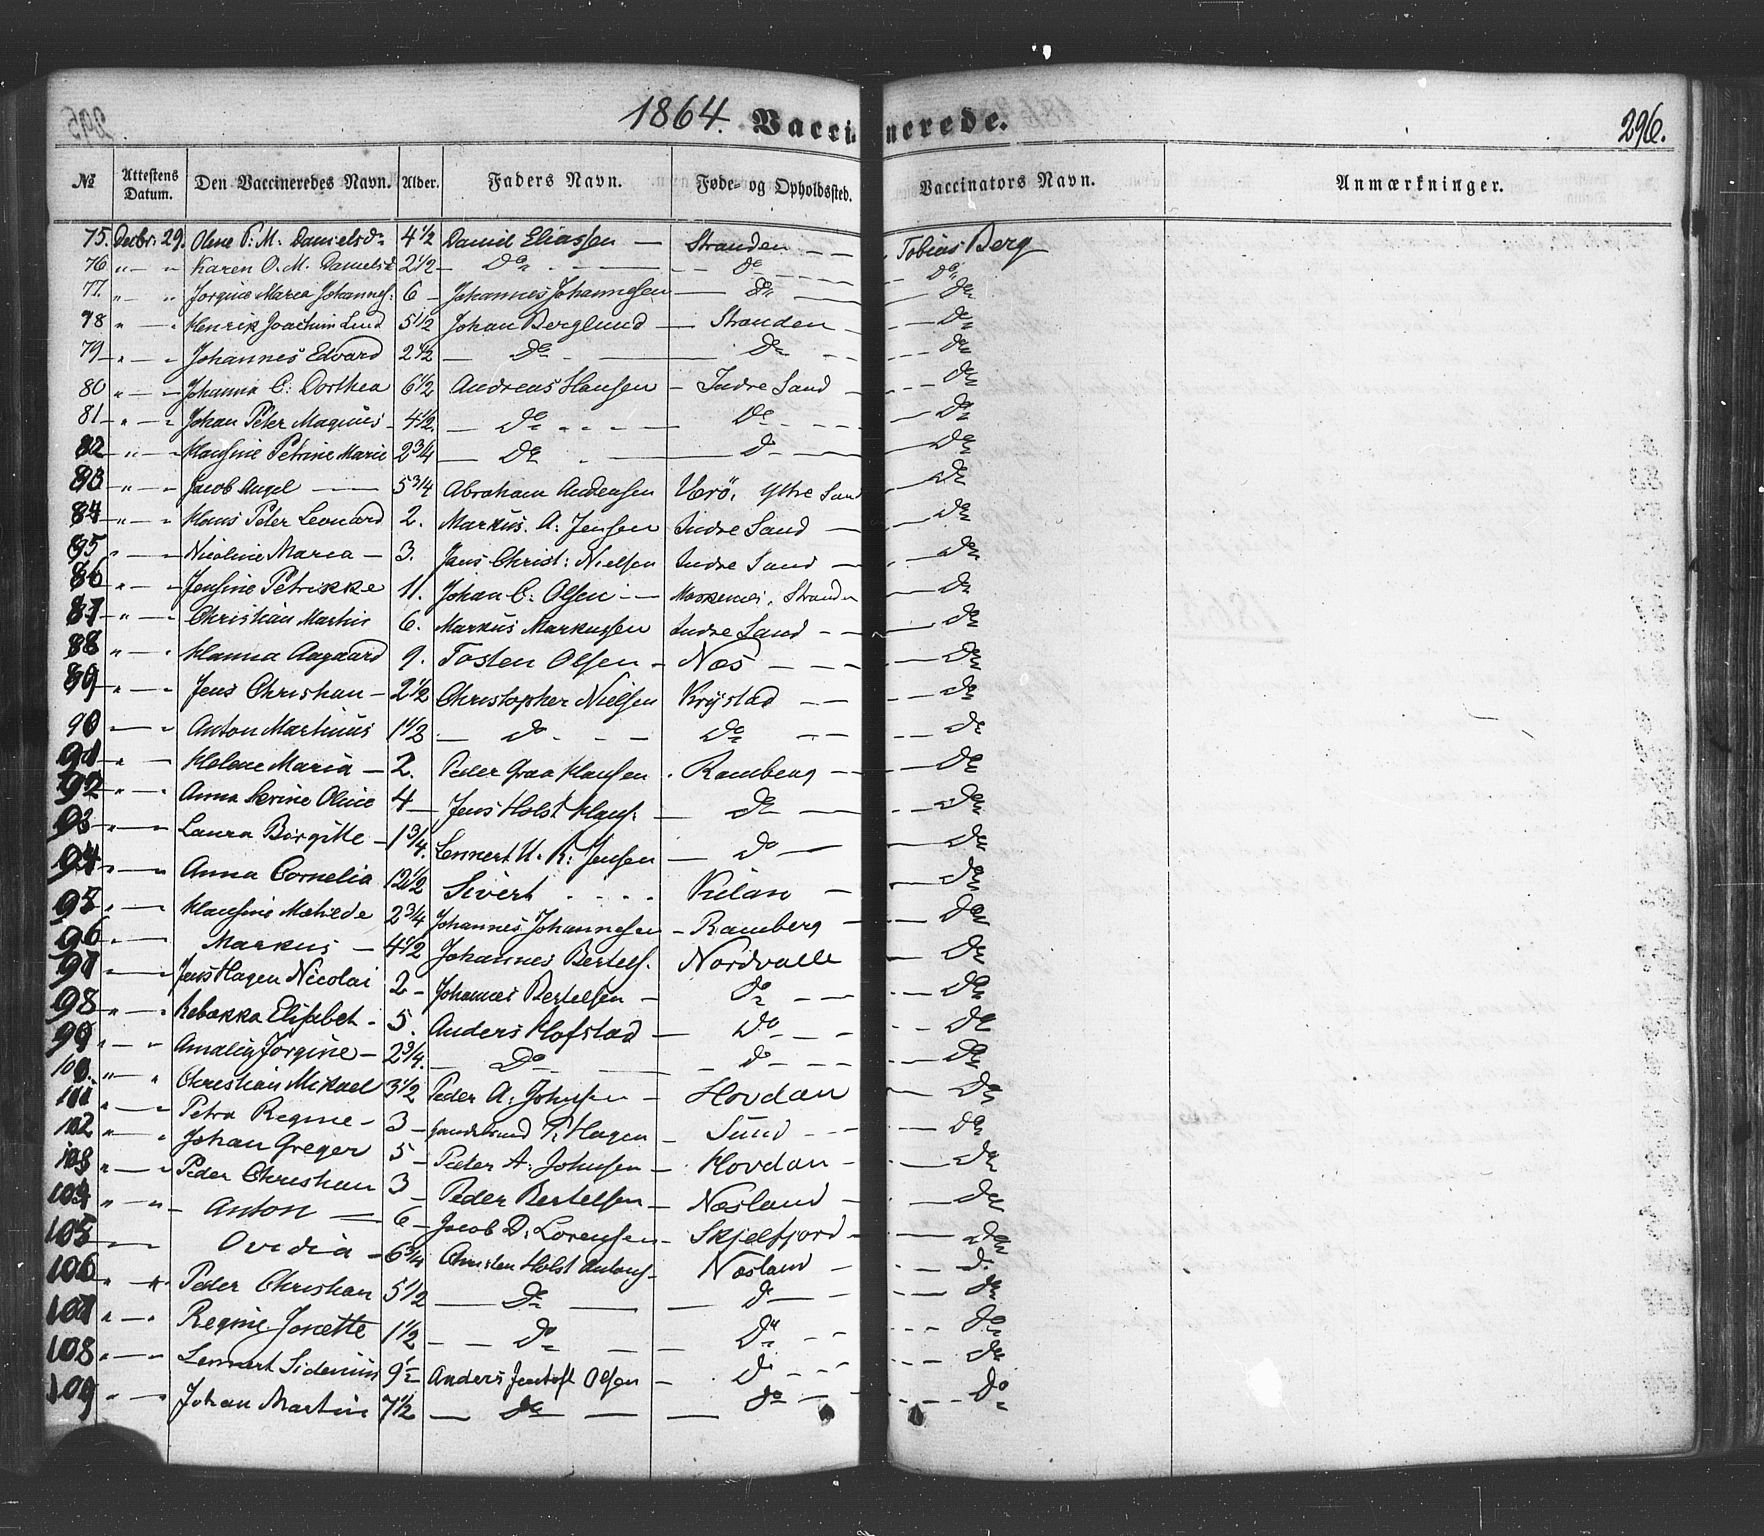 1864. Vaccinerede. 296.
№ Attestens Datum. Den Vaccineredes Navn. Alder. Faders Navn. Føde- og Opholdssted. Vaccinators Navn. Anmærkninger.
75. Decbr. 29. Oline P. M. Danielsdr 4 1/2 Daniel Eliassen — Stranden Tobias Berg
76 " — " Karen O. M. Danielsd 2 1/2 — Do — Do Do
77. " — " Jorgine Marea Johannes: 6 — Johannes Johannesen — Do Do
78 " — " Henrik Joachim Lind 5 1/2 Johan Berglund — Stranden — Do
79 " — " Johannes Edvard 2 1/2 — Do — Do Do
80 " — " Johanna C: Dorthea 6 1/2 Andreas Hansen — Indre Sand Do
81 " — " Johan Peter Magnus 4 1/2 — Do — Do Do
82 " — " Hansine Petrine Marie 2 3/4 — Do — Do Do
83 " — " Jacob Angel — 5 3/4 Abraham Andersen Værö, Ytre Sand Do
84 " — " Hans Peter Leonard 2. Markus. A. Jensen Indre Sand — Do
85 " — " Nicoline Marea — 3. Jens Christ: Nielsen Indre Sand — Do
86 " — " Jensine Petrikke 11. Johan C. Olsen — Moskenes, Stranden Do
87 " — " Christian Martin 6. Markus Markussen Indre Sand — Do
88 " — " Hanna Aagaard 9. Tosten Olsen — Næs — Do
89 " — " Jens Christian — 2 1/2 Christopher Nielsen Krystad — Do
90 " — " Anton Martinus 1 1/2 — Do — Do — Do
91 " — " Helene Maria — 2. Peder Graa Hansen. Ramberg — Do
92 " — " Anna Serine Oline 4 — Jens Holst Hans: — Do — Do
93 " — " Laura Birgitte — 1 3/4. Lennert U. R: Jensen — Do — Do
94 " — " Anna Cornelia 12 1/2 Sivert Kilan — Do
95 " — " Hansine Matilde 2 3/4 Johannes Johannesen — Ramberg — Do
96 " — " Markus — 4 1/2 Johannes Bertels. Nordvalle Do
97 " — " Jens Hagen Nicolai 2 — Johannes Bertelsen — Do — Do
98 " — " Rebekka Elisabet. 5. Anders Hofstad — Do — Do
99 " — " Amalia Jorgine — 2 3/4. — Do — Do — Do
100. " — " Christian Mikael 3 1/2 Peder A: Johnsen — Hovdan Do
101. " — " Petra Regine — 3 — P. Hagen — Sund — Do
102 " — " Johan Greger 5 — Peter A. Johnsen — Hovdan — Do
103 " — " Peder Christian 3 — Peder Bertelsen — Næsland — Do
104 " — " Anton — 6 — Jacob D. Lorensen — Skjelfjord — Do
105 " — " Ovidia — 6 3/4 Christen Holst Antons — Næsland — Do
106 " — " Peder Christian 5 1/2 — Do — Do — Do
107 " — " Regine Jonette 1 1/2 — Do — Do — Do
108 " — " Lennert Sidenius 9 1/2 Anders Jentoft Olsen — Do — Do
109 " — " Johan Martin 7 1/2 — Do — Do — Do